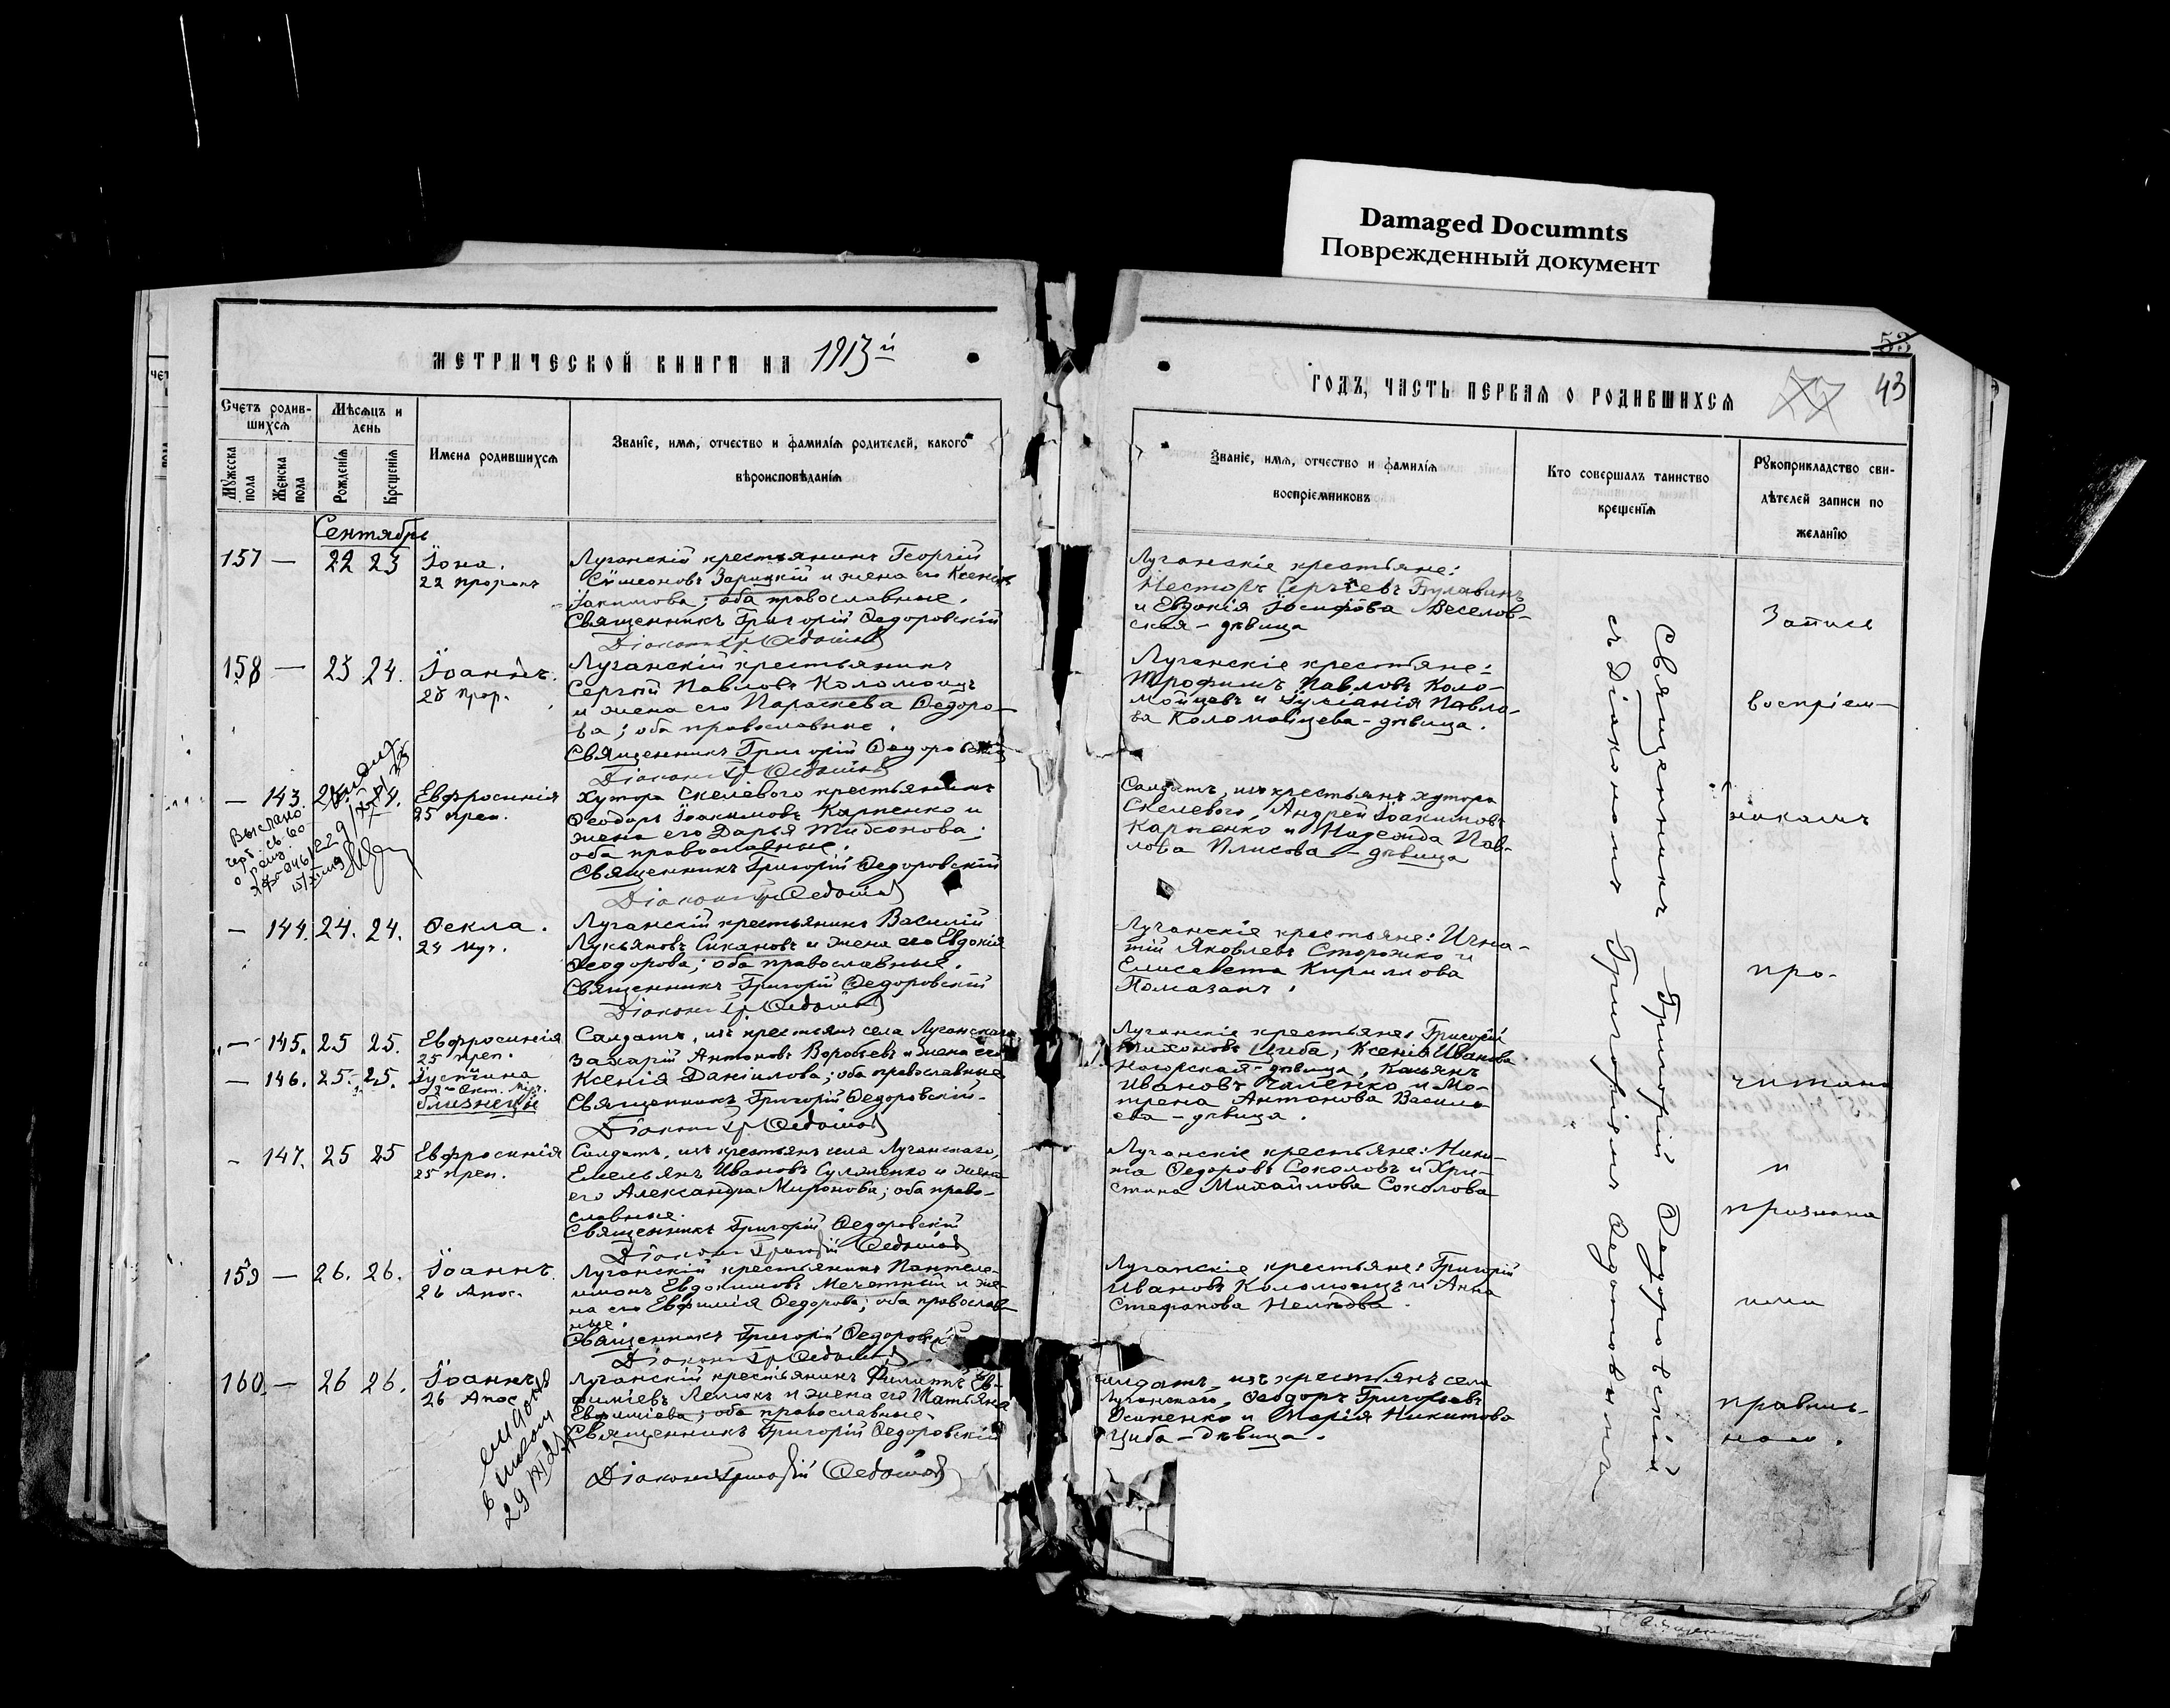 Damaged Documnts
Поврежденный документ
53
43
МЕТРИЧЕСКОЙ КНИГИ НА 1913й
ГОДЪ, ЧАСТЬ ПЕРВАЯ О РОДИВШИХСЯ
Счетъ родив-
шихся
Мужеска пола
Женска пола
Мѣсяцъ и
день
Рожденія
Крещенія
Имена родившихся
Званіе, имя, отчество и фамилія родителей, какого
вѣроисповѣданія
Званіе, имя, отчество и фамилія
воспріемниковъ
Кто совершалъ таинство
крещенія
Рукоприкладство сви-
дѣтелей записи по
желанію
Сентябрь
157 — 22 23 Іона.
22 пророкъ
Луганскій крестьянинъ Георгій
Сѵмеоновъ Зарицкій и жена его Ксенія
Іакимова; оба православные.
Священникъ Григорій Ѳедоровскій
Діаконъ Гр Ѳедотовъ
Луганскіе крестьяне:
Несторъ Сергѣевъ Булавинъ
и Евдокія Іосифова Веселов-
ская - дѣвица
158 — 23 24. Іоаннъ.
23 прор.
Луганскій крестьянинъ
Сергѣй Павловъ Коломоецъ
и жена его Параскева Ѳедоро-
ва; оба православные.
Священникъ Григорій Ѳедоровскій
Діаконъ Гр Ѳедотовъ
Луганскіе крестьяне:
Трофимъ Павловъ Коло-
мойцевъ и Іуліанія Павло-
ва Коломойцева - дѣвица.
— 143. 24. Евфросинія
25 преп.
Выслано
Хутора Скелевого крестьянинъ
Ѳеодоръ Іоакимовъ Карпенко и
жена его Дарья Тихонова;
оба православные.
Священникъ Григорій Ѳедоровскій
Діаконъ Гр Ѳедотовъ
Солдатъ, изъ крестьянъ хутора
Скелевого, Андрей Іоакимовъ
Карпенко и Надежда Пав-
лова Плисова - дѣвица
— 144. 24. 24. Ѳекла.
24 муч.
Луганскій крестьянинъ Василій
Лукьяновъ Сикановъ и жена его Евдокія
Ѳеодорова; оба православные.
Священникъ Григорій Ѳедоровскій
Діаконъ Гр Ѳедотовъ
Луганскіе крестьяне: Игна-
тій Яковлевъ Сторожко и
Елисавета Кириллова
Помазанъ.
— 145. 25 25. Евфросинія
25 преп.
— 146. 25. 25. Іустина
2го Окт. муч.
близнецы
Солдатъ, изъ крестьянъ села Луганскаго
Захарій Антоновъ Воробьевъ и жена его
Ксенія Даніилова; оба православные
Священникъ Григорій Ѳедоровскій.
Діаконъ Гр Ѳедотовъ
Луганскіе крестьяне: Григорій
Тихоновъ Циба, Ксенія Иванова
Ногорская - дѣвица, Касьянъ
Ивановъ Чаленко и Мо-
трена Антонова Василь-
ева - дѣвица.
- 147. 25 25 Евфросинія
25 преп.
Солдатъ, изъ крестьянъ села Луганскаго,
Емельянъ Ивановъ Сулженко и жена
его Александра Миронова; оба право-
славные.
Священникъ Григорій Ѳедоровскій
Діаконъ Григорій Ѳедотовъ
Луганскіе крестьяне: Ники-
та Ѳедоровъ Соколовъ и Хри-
стина Михайлова Соколова
159 — 26. 26. Іоаннъ.
26 Апос.
Луганскій крестьянинъ Пантеле-
имонъ Евдокимовъ Мечетный и же-
на его Евфимія Ѳедорова; оба православ-
ные.
Священникъ Григорій Ѳедоровскій
Діаконъ Гр Ѳедотовъ
Луганскіе крестьяне: Григорій
Ивановъ Коломоецъ и Анна
Стефанова Нелѣдва.
160. — 26 26. Іоаннъ
26 Апос
29/XI 21
Луганскій крестьянинъ Филиппъ Ев-
фиміевъ Лемюкъ и жена его Татьяна
Евфиміева; оба православные.
Священникъ Григорій Ѳедоровскій
Діаконъ Григорій Ѳедотовъ
Солдатъ, изъ крестьянъ села
Луганскаго, Ѳеодоръ Григорьевъ
Осипенко и Марія Никитова
Циба - дѣвица.
Священникъ Григорій Ѳедоровскій
съ Діакономъ Григоріемъ Ѳедотовымъ
Запись
воспріем-
никамъ
про-
читана
и
признана
ими
правиль-
ною.